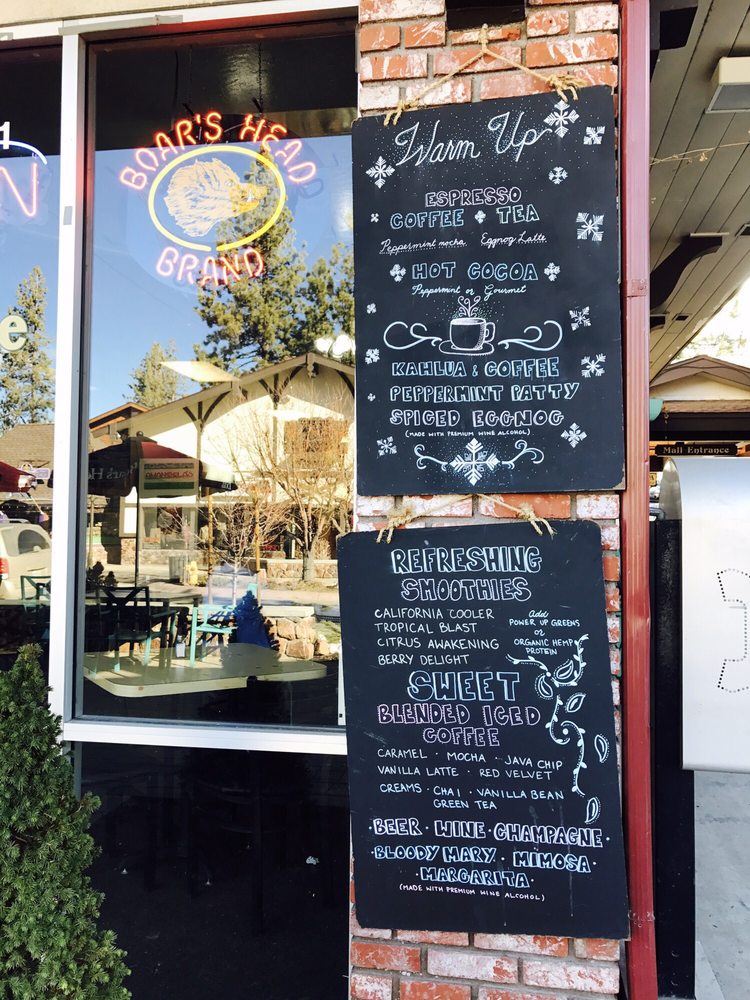 BOAR'S HEAD
BRAND
Warm Up
ESPRESSO
COFFEE TEA
Peppermint mocha Eggnog Latte
HOT COCOA
Peppermint or Gourmet
KAHLUA & COFFEE
PEPPERMINT PATTY
SPICED EGGNOG
(MADE WITH PREMIUM WINE ALCOHOL)
Mall Entrance
REFRESHING
SMOOTHIES
CALIFORNIA COOLER
TROPICAL BLAST
CITRUS AWAKENING
BERRY DELIGHT
add
POWER UP GREENS
or
ORGANIC HEMP
PROTEIN
SWEET
BLENDED ICED
COFFEE
CARAMEL · MOCHA · JAVA CHIP
VANILLA LATTE · RED VELVET
CREAMS · CHAI · VANILLA BEAN
GREEN TEA
BEER · WINE · CHAMPAGNE ·
BLOODY MARY · MIMOSA ·
· MARGARITA ·
(MADE WITH PREMIUM WINE ALCOHOL)